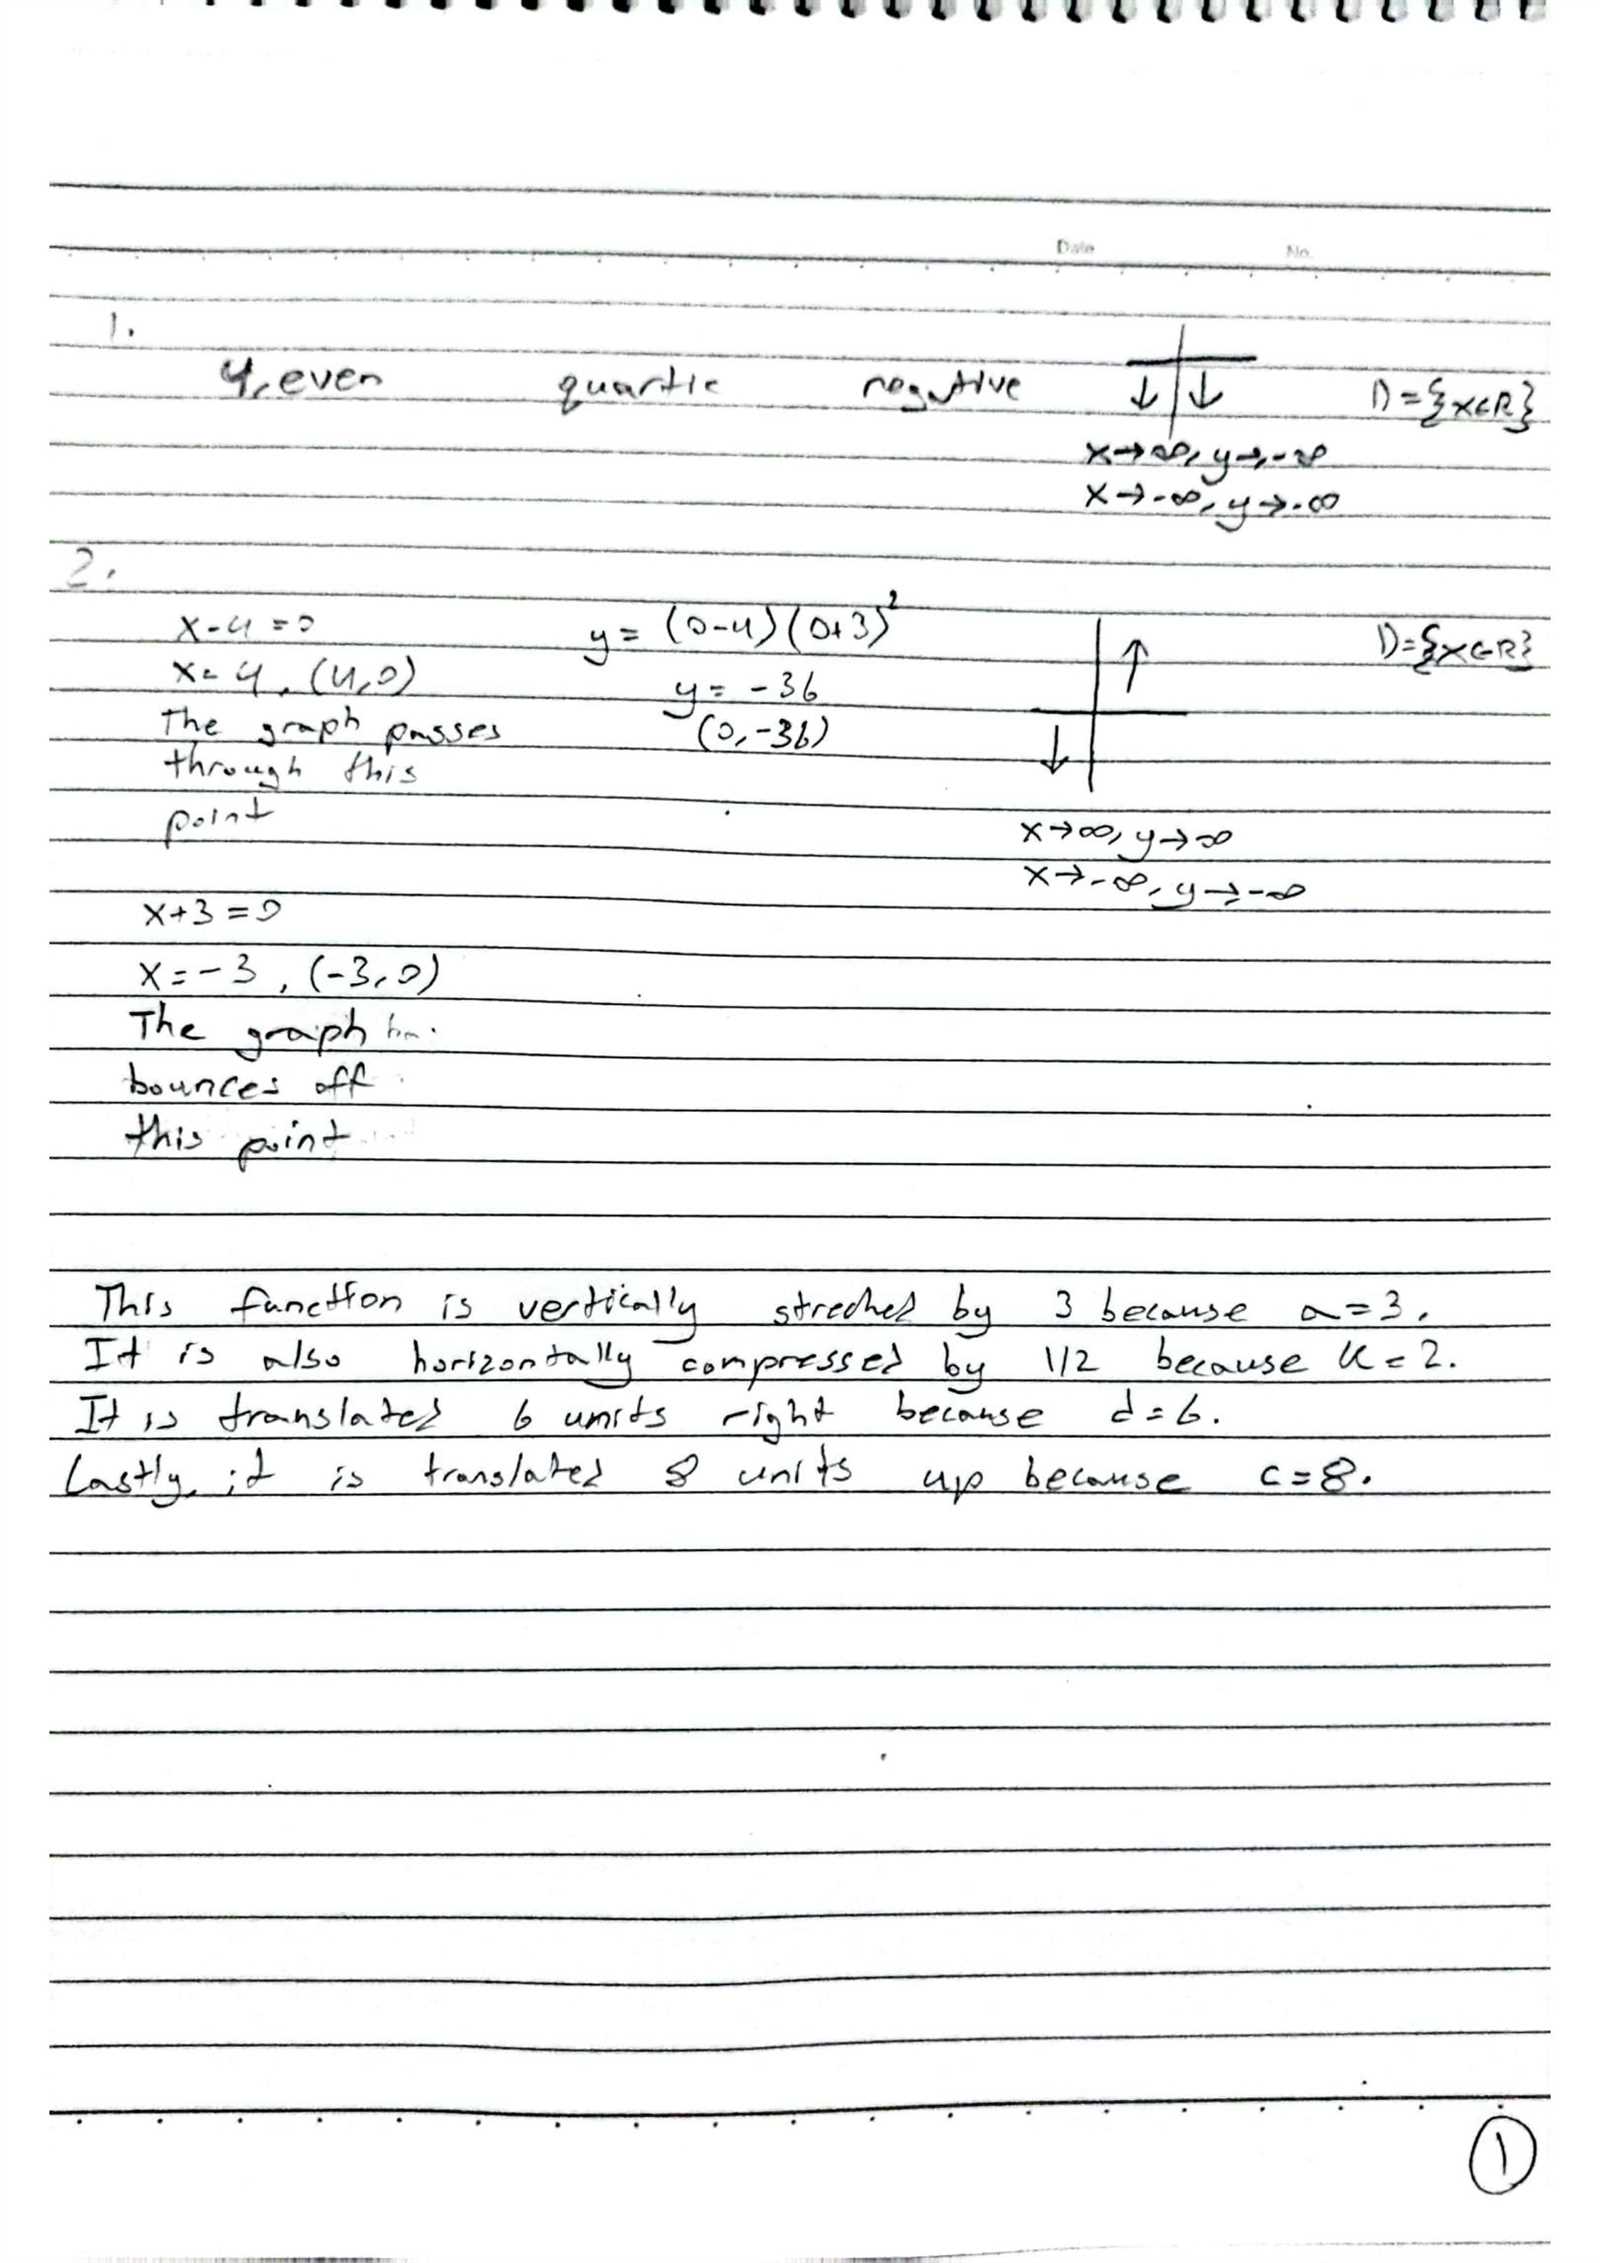 Date No.
1.
4, even quartic negative D = {x∈R}
x→∞, y→-∞
x→-∞, y→-∞
2.
x-4=0 y= (0-4)(0+3)² D={x∈R}
x=4, (4,0) y= -36
The graph passes (0,-36)
through this
point
x→∞, y→∞
x→-∞, y→-∞
x+3=0
x=-3, (-3,0)
The graph
bounces off
this point
This function is vertically streched by 3 because a=3.
It is also horizontally compressed by 1/2 because k=2.
It is translated 6 units right because d=6.
Lastly, it is translated 8 units up because c=8.
1